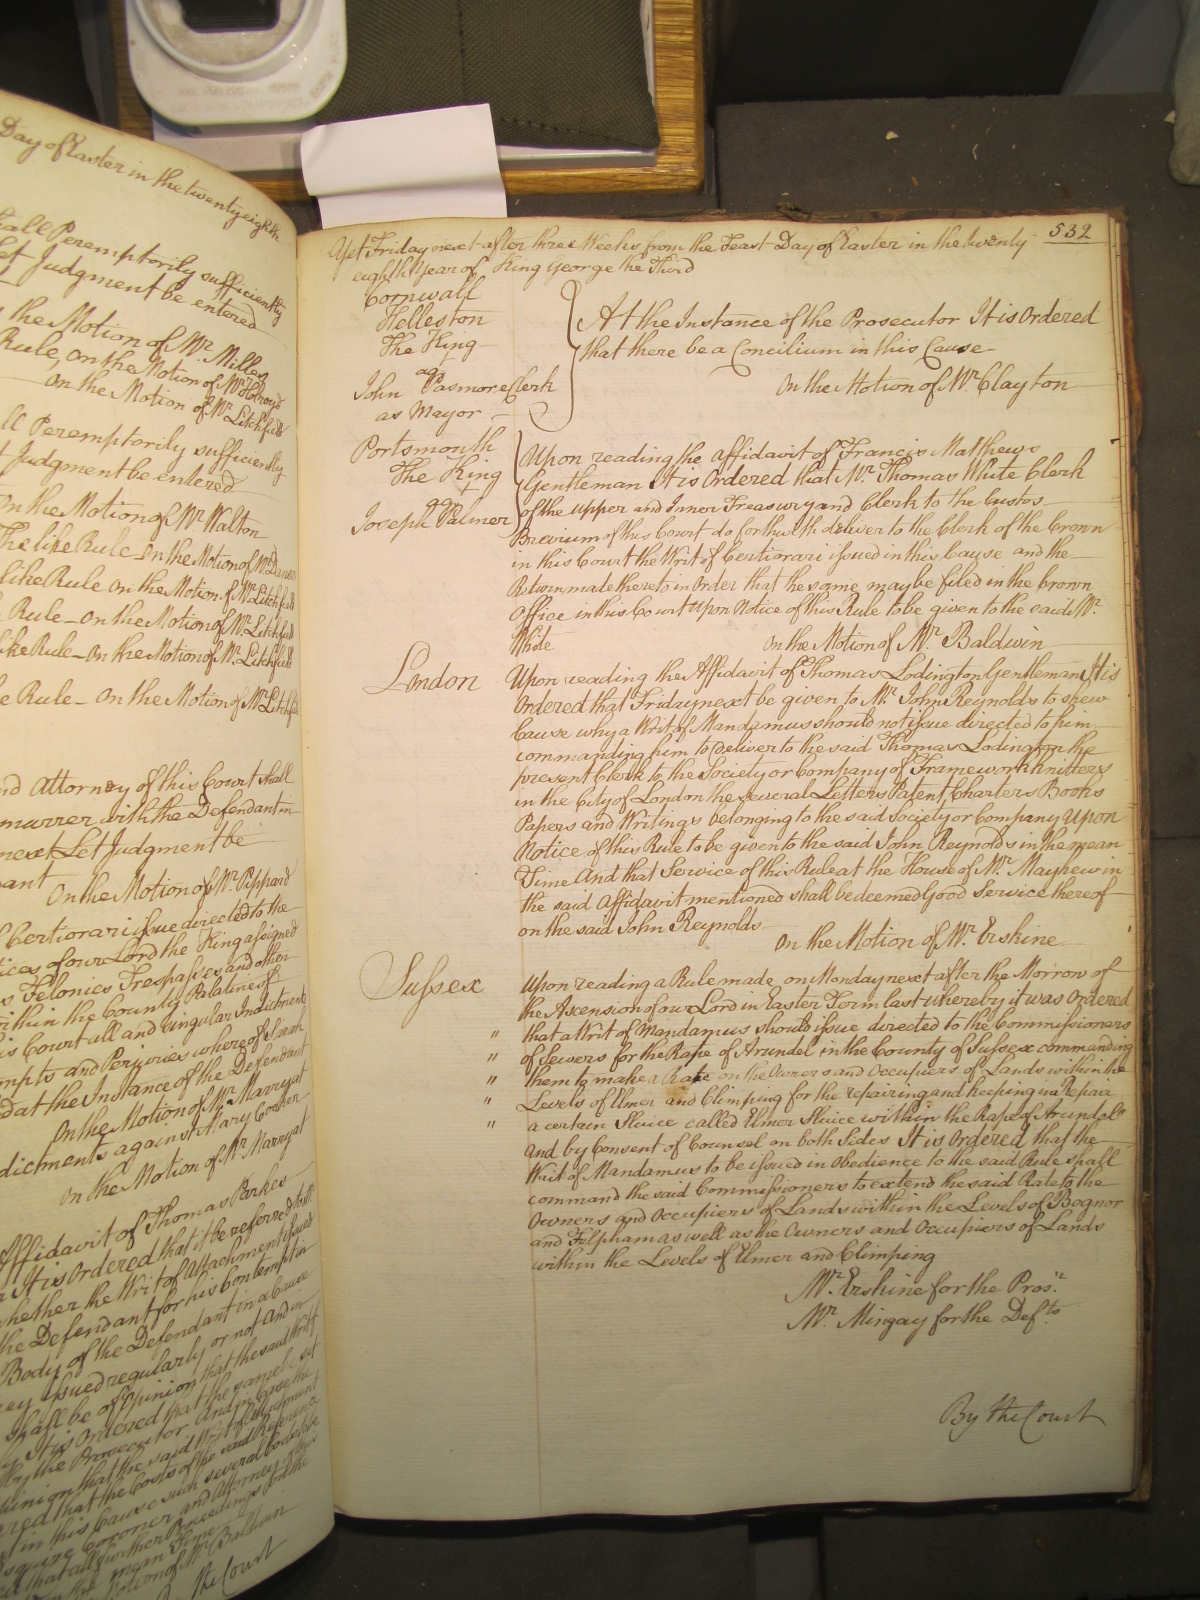 Day of Easter in the twenty eighth
shall Peremptorily sufficiently
Let Judgment be entered
the Motion of Mr. Milles
Rule, on the Motion of Mr.
on the Motion of Mr. Litchfield
Peremptorily sufficiently
Judgment be entered
on the Motion of Mr. Walton
The like Rule on the Motion of Mr.
like Rule on the Motion of Mr. Litchfield
Rule on the Motion of Mr. Litchfield
like Rule on the Motion of Mr. Litchfield
Rule on the Motion of Mr. Litchfield
and Attorney of this Court shall
with the Defendant in
next Let Judgment be
On the Motion of Mr. Pippard
Certiorari issue directed to the
of our Lord the King assigned
Felonies Trespasses and other
within the County Palatine of
Court all and Singular Indictments
and Perjuries whereof Sarah
at the Instance of the Defendant
On the Motion of Mr. Marryat
dictments against Mary
on the Motion of Mr. Marryat
Affidavit of Thomas Parkes
It is Ordered that it be referred to
whether the Writ of Attachment issued
the Defendant for his Contempt
Body of the Defendant in a Cause
issued regularly or not And
shall be of Opinion that the said Writ
It is Ordered that the same be
by the Prosecutor And in Case the
opinion that the said Writ of Attachment
that the Costs of the said Reference
in this Cause such several
Coroner and Attorney
that all further Proceedings
the mean Time
Motion of Mr. Baldwin
the Court
532
Yet Friday next after three Weeks from the Feast Day of Easter in the twenty
eighth Year of King George the Third
Cornwall
Helleston
The King
agt
John Pasmore Clerk
as Mayor
At the Instance of the Prosecutor It is Ordered
that there be a Concilium in this Cause
On the Motion of Mr. Clayton
Portsmouth
The King
agt
Joseph Palmer
Upon reading the Affidavit of Francis Matthews
Gentleman It is Ordered that Mr. Thomas White Clerk
of the upper and Inner Treasury and Clerk to the Custos
Brevium of this Court do forthwith deliver to the Clerk of the Crown
in this Court the Writ of Certiorari issued in this Cause and the
Return made thereto in Order that the same may be filed in the Crown
Office in this Court Upon Notice of this Rule to be given to the said Mr.
White
On the Motion of Mr. Baldwin
London
Upon reading the Affidavit of Thomas Lodington Gentleman It is
Ordered that Friday next be given to Mr. John Reynolds to shew
Cause why a Writ of Mandamus should not issue directed to him
commanding him to deliver to the said Thomas Lodington the
present Clerk to the Society or Company of Frameworkknitters
in the City of London the several Letters Patent, Charters Books
Papers and Writings belonging to the said Society or Company Upon
Notice of this Rule to be given to the said John Reynolds in the mean
Time And that Service of this Rule at the House of Mr. Mayhew in
the said Affidavit mentioned shall be deemed Good Service thereof
on the said John Reynolds
On the Motion of Mr. Erskine
Sussex
Upon reading a Rule made on Monday next after the Morrow of
the Ascension of our Lord in Easter Term last whereby it was Ordered
" that a Writ of Mandamus should issue directed to the Commissioners
" of Sewers for the Rape of Arundel in the County of Sussex commanding
" them to make a Rate on the Owners and Occupiers of Lands within the
" Levels of Elmer and Climping for the repairing and keeping in Repair
" a certain Sluice called Elmer Sluice within the Rape of Arundel"
and by Consent of Counsel on both Sides It is Ordered that the
Writ of Mandamus to be issued in Obedience to the said Rule shall
command the said Commissioners to extend the said Rate to the
Owners and Occupiers of Lands within the Levels of Bognor
and Felpham as well as the Owners and Occupiers of Lands
within the Levels of Elmer and Climping
Mr. Erskine for the Pros.r
Mr. Mingay for the Def.ts
By the Court